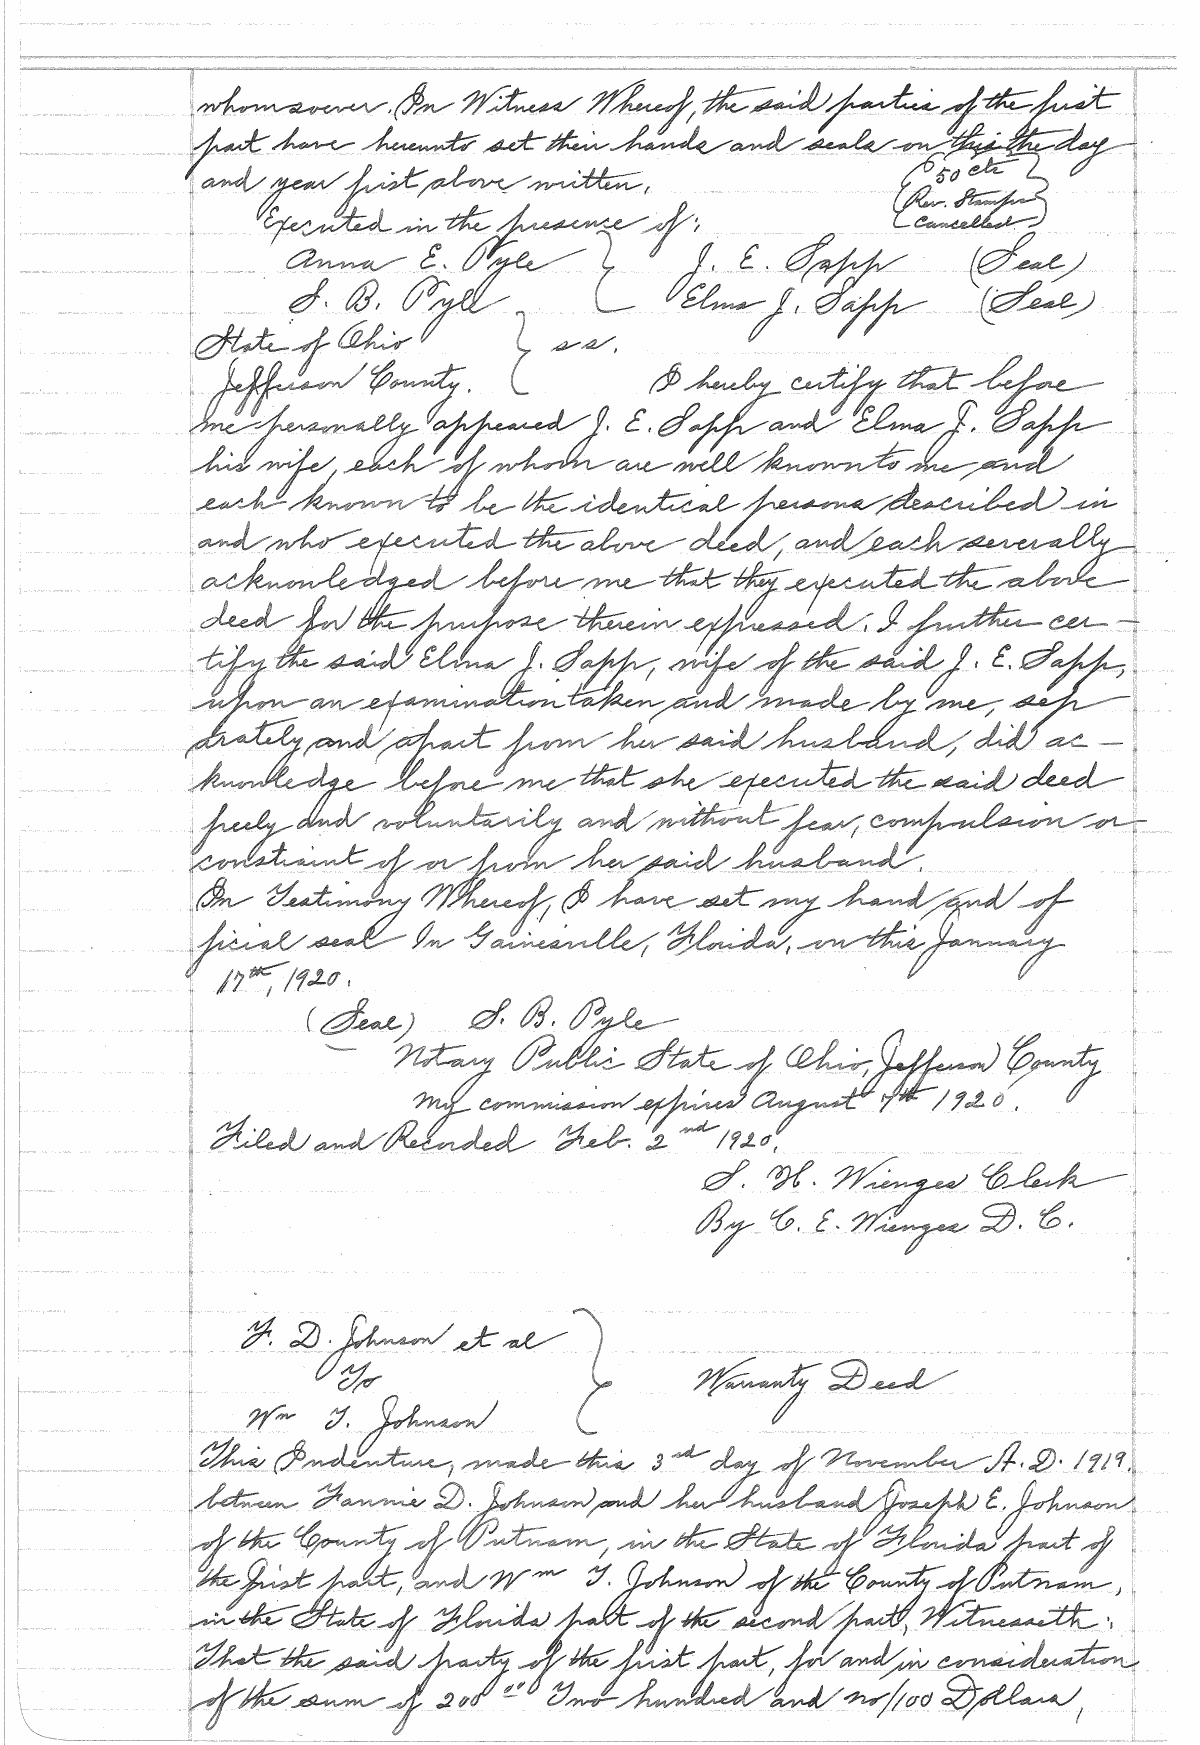 whomsoever. In Witness Whereof, the said parties of the first
part have hereunto set their hands and seals on this the day
and year first above written.
50 cts
Rev. Stamps
Cancelled
Executed in the presence of:
Anna E. Pyle J. E. Sapp (Seal)
S. B. Pyle Elma J. Sapp (Seal)
State of Ohio ss.
Jefferson County. I hereby certify that before
me personally appeared J. E. Sapp and Elma J. Sapp
his wife, each of whom are well known to me and
each known to be the identical persons described in
and who executed the above deed, and each severally
acknowledged before me that they executed the above
deed for the purpose therein expressed. I further cer-
tify the said Elma J. Sapp, wife of the said J. E. Sapp,
upon an examination taken and made by me, sep
arately and apart from her said husband, did ac-
knowledge before me that she executed the said deed
freely and voluntarily and without fear, compulsion or
constraint of or from her said husband.
In Testimony Whereof, I have set my hand and of
ficial seal In Gainesville, Florida, on this January
17th, 1920.
(Seal) S. B. Pyle
Notary Public State of Ohio, Jefferson County
My commission expires August 7th 1920.
Filed and Recorded Feb. 2nd 1920.
S. H. Wienges Clerk
By C. E. Wienges D. C.
F. D. Johnson et al
To Warranty Deed
Wm T. Johnson
This Indenture, made this 3rd day of November A. D. 1919.
between Fannie D. Johnson and her husband Joseph E. Johnson
of the County of Putnam, in the State of Florida part of
the first part, and Wm T. Johnson of the County of Putnam,
in the State of Florida part of the second part, Witnesseth:
That the said party of the first part, for and in consideration
of the sum of 200 00 Two hundred and no/100 Dollars,